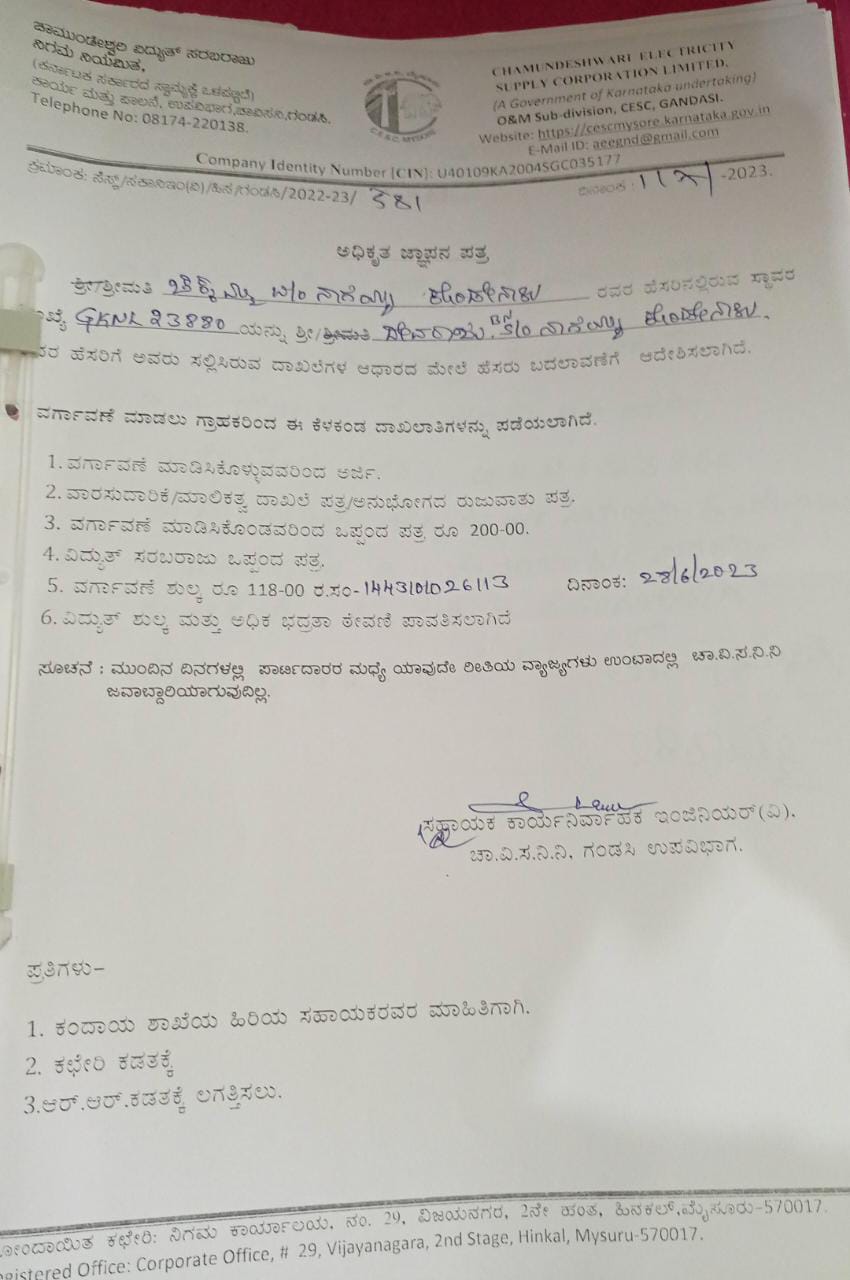 ಚಾಮುಂಡೇಶ್ವರಿ ವಿದ್ಯುತ್ ಸರಬರಾಜು
ನಿಗಮ ನಿಯಮಿತ,
(ಕರ್ನಾಟಕ ಸರ್ಕಾರದ ಸ್ವಾಮ್ಯಕ್ಕೆ ಒಳಪಟ್ಟಿದೆ)
ಕಾರ್ಯ ಮತ್ತು ಪಾಲನೆ, ಉಪವಿಭಾಗ,ಚಾವಿಸನಿ,ಗಂಡಸಿ.
Telephone No: 08174-220138.
C.E.S.C. MYSORE
CHAMUNDESHWARI ELECTRICITY
SUPPLY CORPORATION LIMITED.
(A Government of Karnataka undertaking)
O&M Sub-division, CESC, GANDASI.
Website: https://cescmysore.karnataka.gov.in
E-Mail ID: aeegnd@gmail.com
Company Identity Number [CIN]: U40109KA2004SGC035177
ಕ್ರಮಾಂಕ: ಸೆಸ್ಕ್/ಸಕಾನಿಇಂ(ವಿ)/ಹಿಸ/ಗಂಡಸಿ/2022-23/ 381
ದಿನಾಂಕ : 11 -2023.
ಅಧಿಕೃತ ಜ್ಞಾಪನ ಪತ್ರ
ಶ್ರೀ/ಶ್ರೀಮತಿ ನಾಗಯ್ಯ ರವರ ಹೆಸರಿನಲ್ಲಿರುವ ಸ್ಥಾವರ
ಖ್ಯೆ GKNL 23880 ಯನ್ನು ಶ್ರೀ/ಶ್ರೀಮತಿ ನಾಗಯ್ಯ
ವರ ಹೆಸರಿಗೆ ಅವರು ಸಲ್ಲಿಸಿರುವ ದಾಖಲೆಗಳ ಆಧಾರದ ಮೇಲೆ ಹೆಸರು ಬದಲಾವಣೆಗೆ ಆದೇಶಿಸಲಾಗಿದೆ.
ವರ್ಗಾವಣೆ ಮಾಡಲು ಗ್ರಾಹಕರಿಂದ ಈ ಕೆಳಕಂಡ ದಾಖಲಾತಿಗಳನ್ನು ಪಡೆಯಲಾಗಿದೆ.
1.ವರ್ಗಾವಣೆ ಮಾಡಿಸಿಕೊಳ್ಳುವವರಿಂದ ಅರ್ಜಿ.
2.ವಾರಸುದಾರಿಕೆ/ಮಾಲಿಕತ್ವ ದಾಖಲೆ ಪತ್ರ/ಅನುಭೋಗದ ರುಜುವಾತು ಪತ್ರ.
3. ವರ್ಗಾವಣೆ ಮಾಡಿಸಿಕೊಂಡವರಿಂದ ಒಪ್ಪಂದ ಪತ್ರ ರೂ 200-00.
4.ವಿದ್ಯುತ್ ಸರಬರಾಜು ಒಪ್ಪಂದ ಪತ್ರ.
5. ವರ್ಗಾವಣೆ ಶುಲ್ಕ ರೂ 118-00 ರ.ಸಂ-1443101026113 ದಿನಾಂಕ: 28/6/2023
6.ವಿದ್ಯುತ್ ಶುಲ್ಕ ಮತ್ತು ಅಧಿಕ ಭದ್ರತಾ ಠೇವಣಿ ಪಾವತಿಸಲಾಗಿದೆ
ಸೂಚನೆ : ಮುಂದಿನ ದಿನಗಳಲ್ಲಿ ಪಾರ್ಟಿದಾರರ ಮಧ್ಯೆ ಯಾವುದೇ ರೀತಿಯ ವ್ಯಾಜ್ಯಗಳು ಉಂಟಾದಲ್ಲಿ ಚಾ.ವಿ.ಸ.ನಿ.ನಿ
ಜವಾಬ್ದಾರಿಯಾಗುವುದಿಲ್ಲ.
ಸಹಾಯಕ ಕಾರ್ಯನಿರ್ವಾಹಕ ಇಂಜಿನಿಯರ್(ವಿ),
ಚಾ.ವಿ.ಸ.ನಿ.ನಿ, ಗಂಡಸಿ ಉಪವಿಭಾಗ.
ಪ್ರತಿಗಳು-
1. ಕಂದಾಯ ಶಾಖೆಯ ಹಿರಿಯ ಸಹಾಯಕರವರ ಮಾಹಿತಿಗಾಗಿ.
2. ಕಛೇರಿ ಕಡತಕ್ಕೆ
3.ಆರ್.ಆರ್.ಕಡತಕ್ಕೆ ಲಗತ್ತಿಸಲು.
ೋಂದಾಯಿತ ಕಛೇರಿ: ನಿಗಮ ಕಾರ್ಯಾಲಯ, ನಂ. 29, ವಿಜಯನಗರ, 2ನೇ ಹಂತ, ಹಿನಕಲ್,ಮೈಸೂರು-570017.
egistered Office: Corporate Office, # 29, Vijayanagara, 2nd Stage, Hinkal, Mysuru-570017.